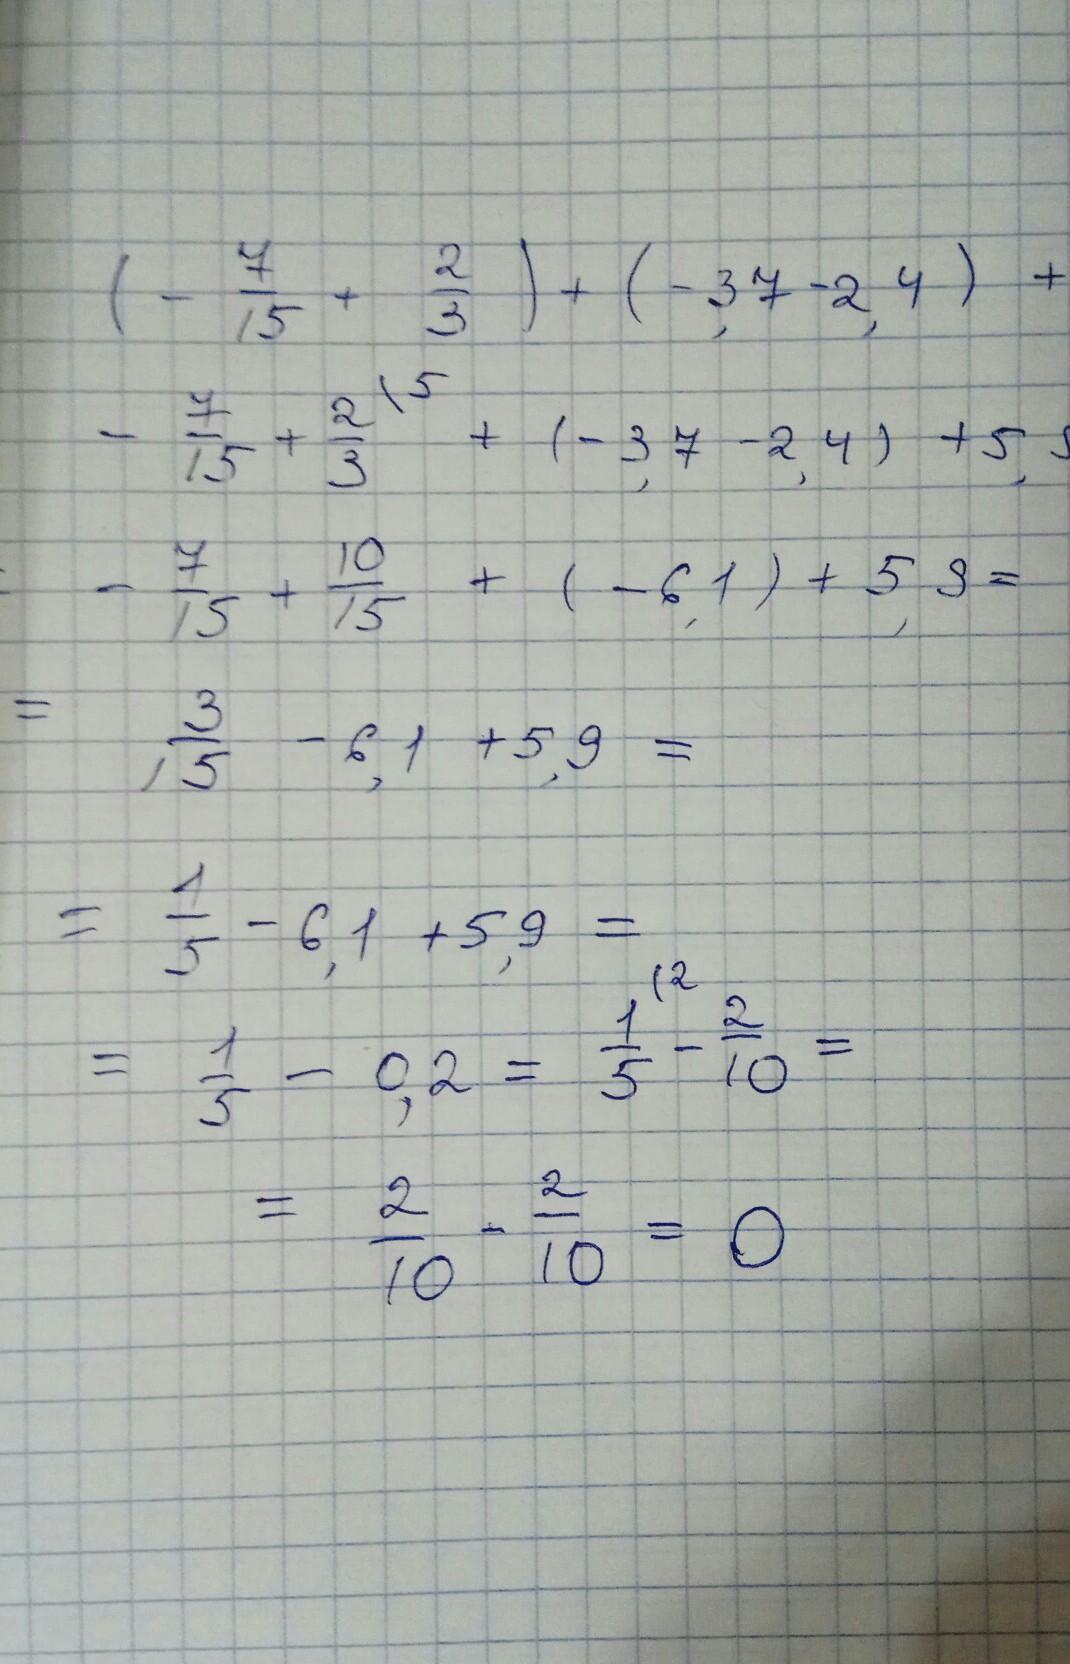 (- 7/15 + 2/3) + (-3,7 -2,4) +
- 7/15 + 2/3 (5 + (-3,7 -2,4) +5,
- 7/15 + 10/15 + (-6,1) + 5,9 =
= 3/15 - 6,1 + 5,9 =
= 1/5 - 6,1 + 5,9 =
= 1/5 - 0,2 = 1/5 (2 - 2/10 =
= 2/10 - 2/10 = 0